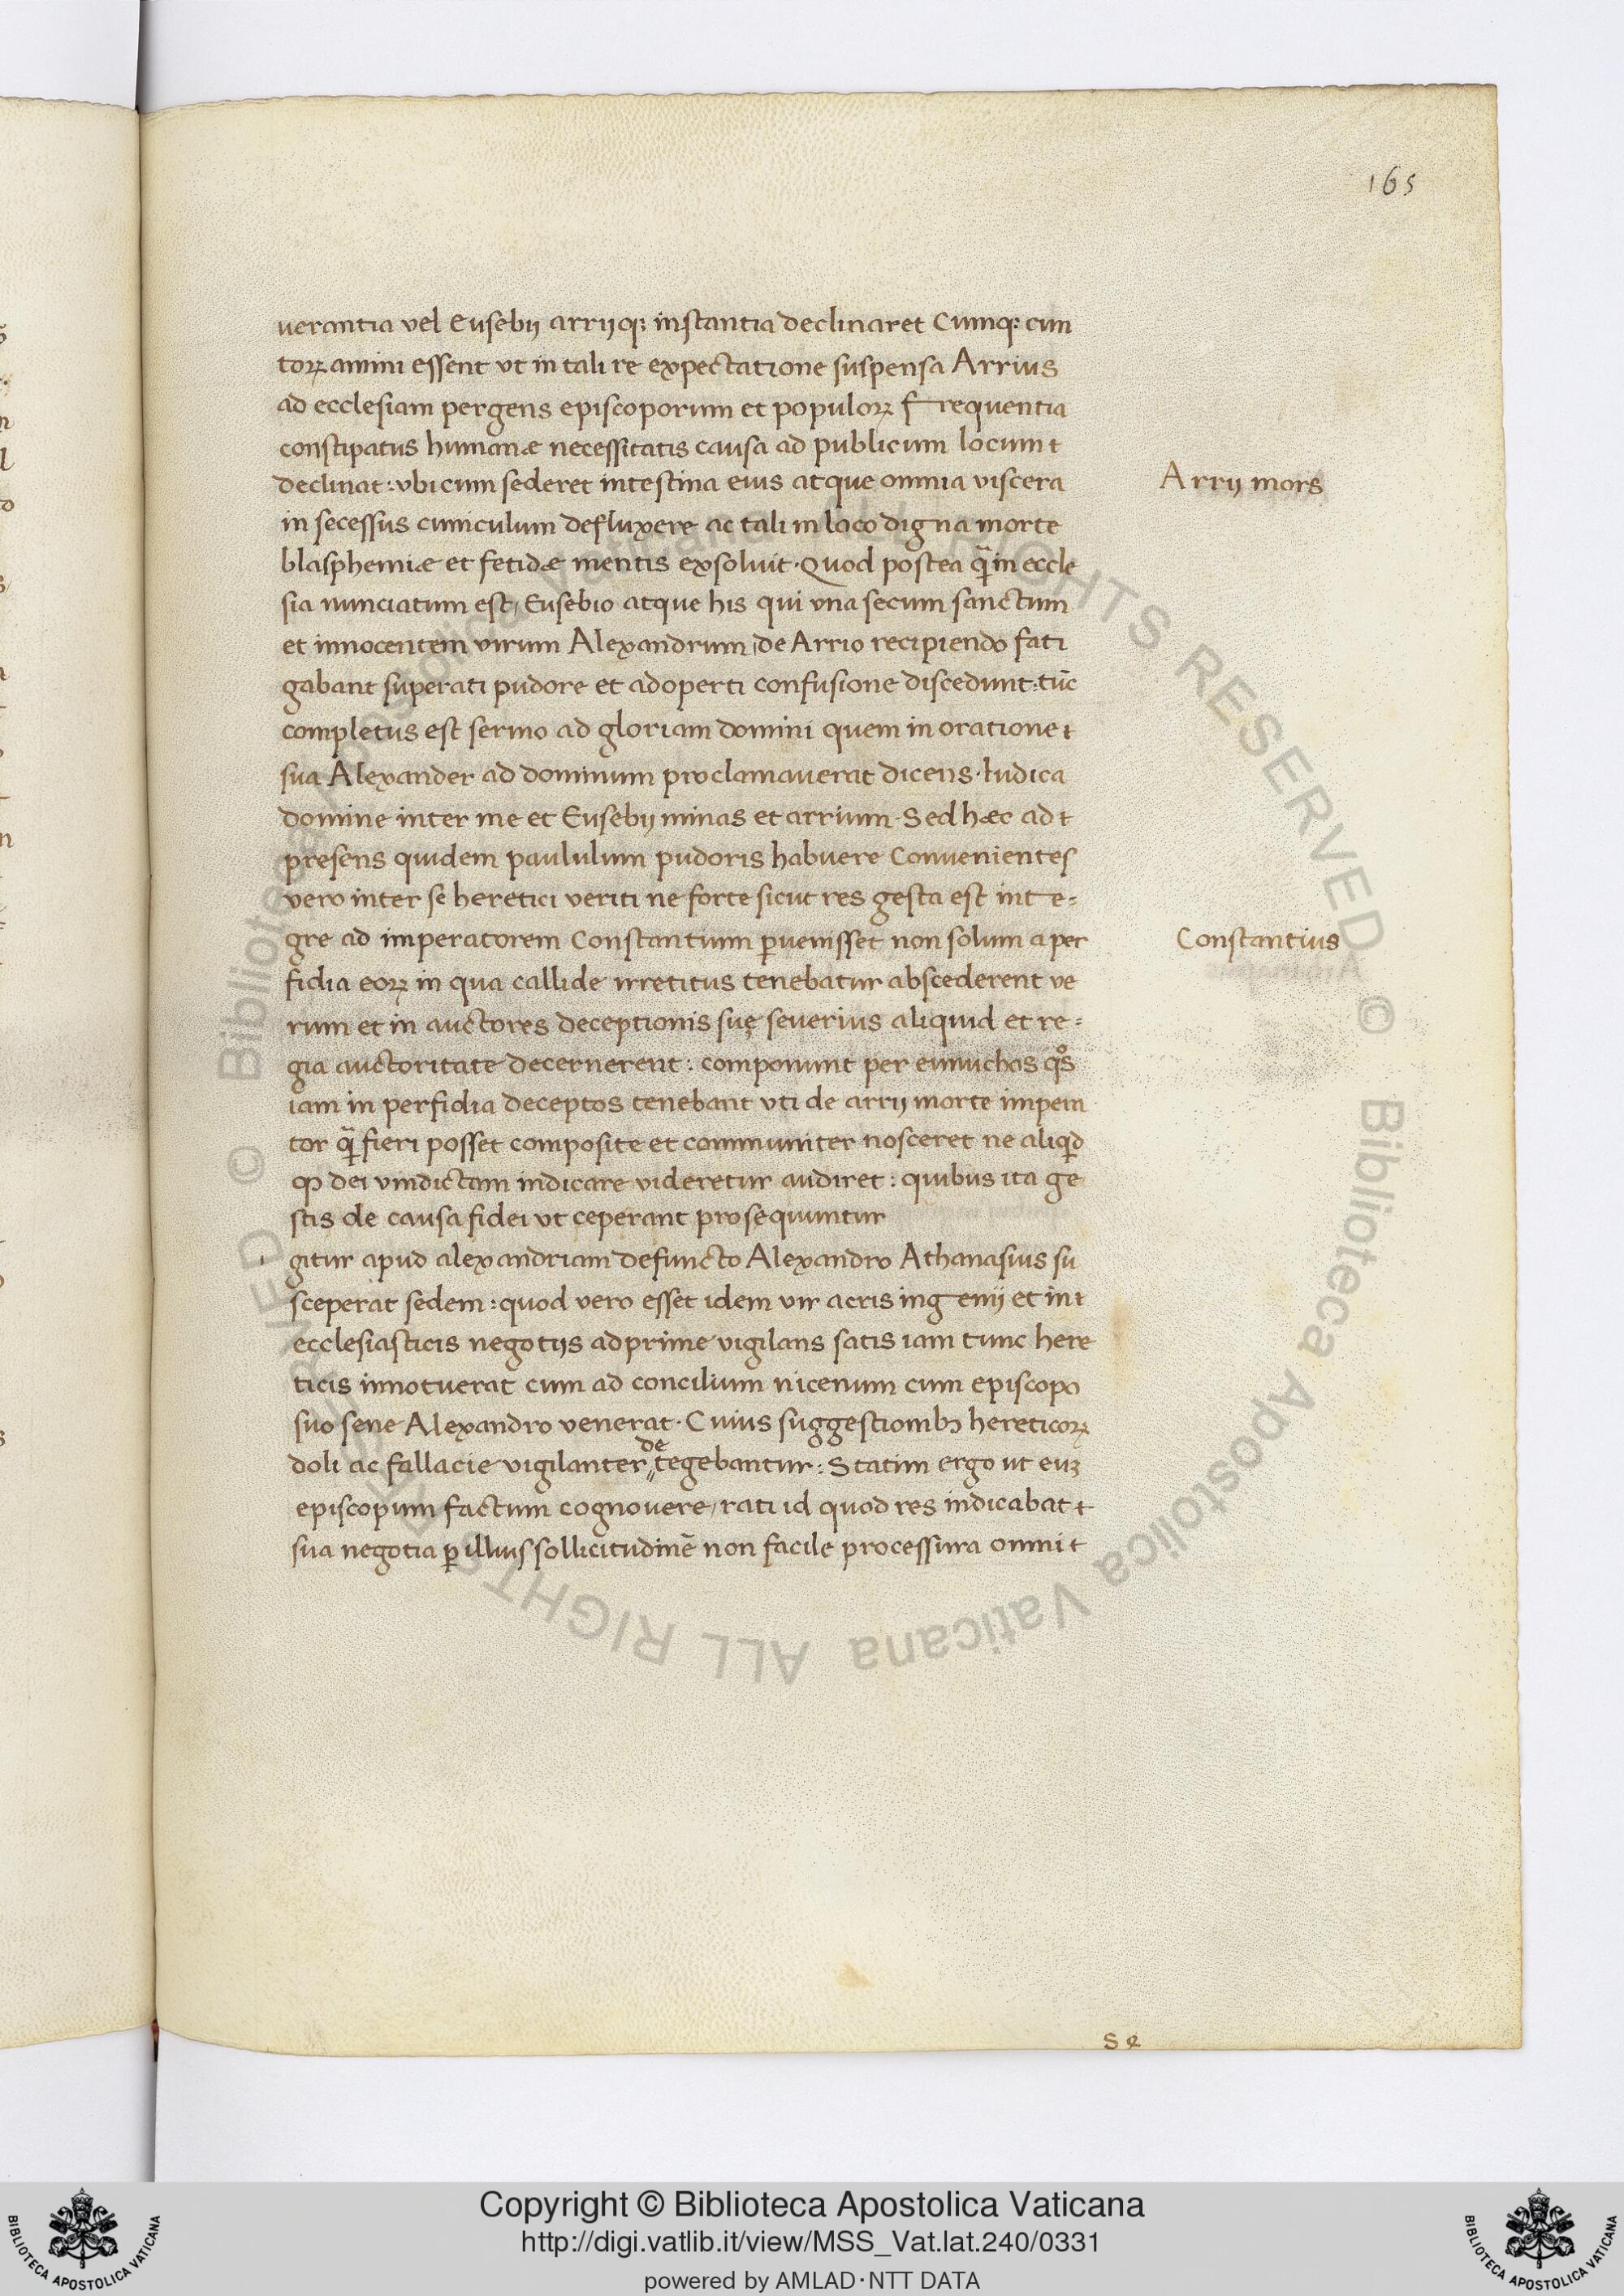 165
uerantia vel Eusebij arrijq; instantia declinaret Cumq; cun
torꝝ animi essent vt in tali re expectatione suspensa Arrius
ad ecclesiam pergens episcoporum et populorꝝ frequentia
constipatus humanæ necessitatis causa ad publicum locum t
declinat: vbi cum sederet intestina eius atque omnia viscera
Arrij mors
in secessus cuniculum defluxere ac tali in loco digna morte
blasphemiæ et fetidæ mentis exsoluit. Quod postea q̄ in eccle
sia nunciatum est, Eusebio atque his qui vna secum sanctum
et innocentem virum Alexandrum, de Arrio recipiendo fati
gabant superati pudore et adoperti confusione discedunt: tūc
completus est sermo ad gloriam domini quem in oratione t
sua Alexander ad dominum proclamauerat dicens. Iudica
domine inter me et Eusebij minas et arrium. Sed hæc ad t
presens quidem paululum pudoris habuere Conuenientes
vero inter se heretici veriti ne forte sicut res gesta est inte=
gre ad imperatorem Constantium ꝑuenisset non solum a per
Constantius
fidia eorꝝ in qua callide irretitus tenebatur abscederent ve
rum et in auctores deceptionis suę seuerius aliquid et re=
gia auctoritate decernerent: componunt per eunuchos qͦs
iam in perfidia deceptos tenebant vti de arrij morte impera
tor q̄ fieri posset composite et communiter nosceret ne aliqd
ꝙ dei vindictam indicare videretur audiret: quibus ita ge
stis de causa fidei vt ceperant prosequuntur
i gitur apud alexandriam defuncto Alexandro Athanasius su
sceperat sedem: quod vero esset idem vir acris ingenij et in t
ecclesiasticis negotijs adprime vigilans satis iam tunc here
ticis innotuerat cum ad concilium nicenum cum episcopo
suo sene Alexandro venerat. Cuius suggestionibꝫ hereticorꝝ
de
doli ac fallacie vigilanter tegebantur: Statim ergo ut eūꝫ
episcopum factum cognouere, rati id quod res indicabat t
sua negotia ꝑ illius sollicitudinē non facile processura omni t
Copyright © Biblioteca Apostolica Vaticana
http://digi.vatlib.it/view/MSS_Vat.lat.240/0331
powered by AMLAD·NTT DATA
BIBLIOTECA APOSTOLICA VATICANA
BIBLIOTECA APOSTOLICA VATICANA
© Biblioteca Apostolica Vaticana ALL RIGHTS RESERVED © Biblioteca Apostolica Vaticana ALL RIGHTS RESERVED